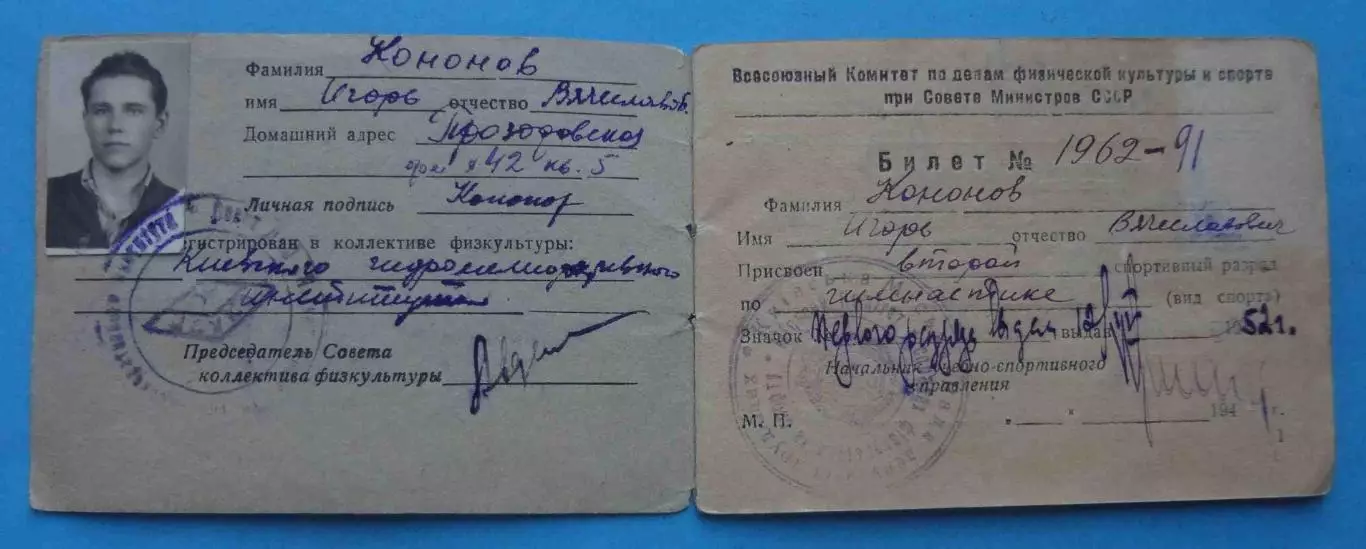 Фамилия Кононов
имя Игорь отчество Вячеславов.
Домашний адрес Прозоровская
42 кв. 5
Личная подпись Кононов
гистрирован в коллективе физкультуры:
Киевского гидромелиоративного
института
Председатель Совета
коллектива физкультуры
Всесоюзный Комитет по делам физической культуры и спорта
при Совете Министров СССР
Билет № 1962-91
Фамилия Кононов
Имя Игорь отчество Вячеславович
Присвоен второй спортивный разряд
по гимнастике (вид спорта)
Значок Первого разряда выдан 52 г.
Начальник учебно-спортивного
управления
М. П. „ “ 194 г.